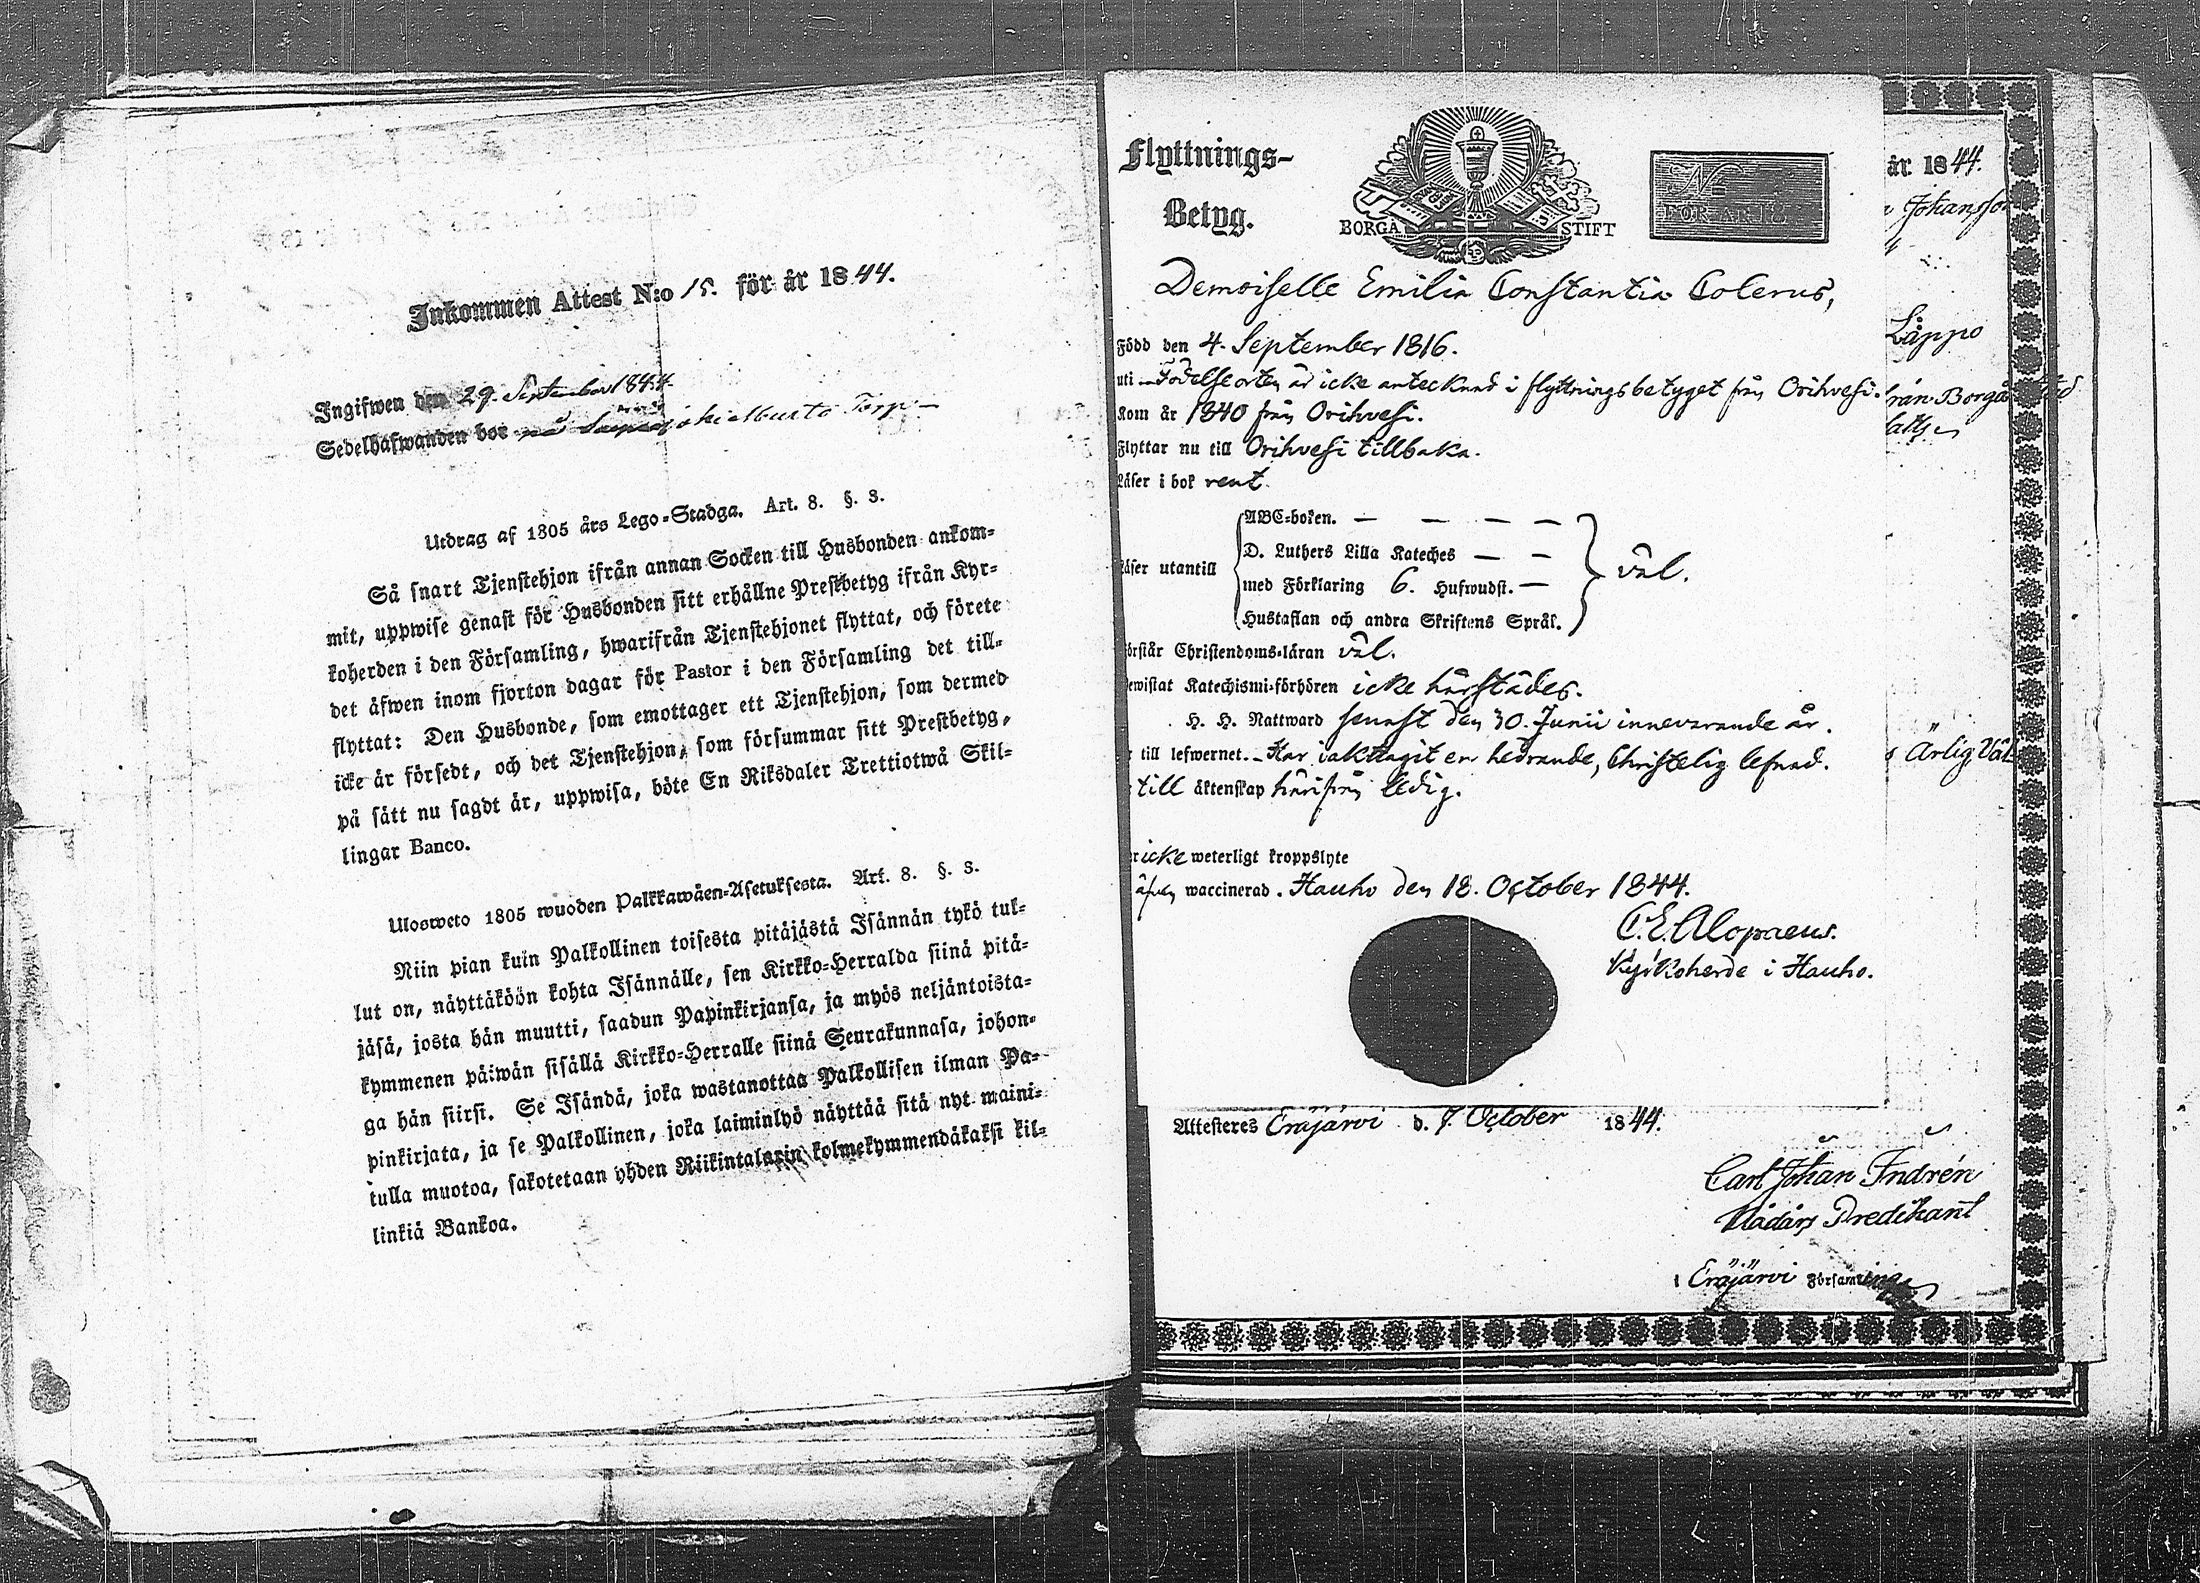 Inkommen Attest N:o 15. för år 1844.
Ingifwen den 29. September 1844.
Sedelhafwanden bor på
Utdrag af 1805 års Lego-Stadga. Art. 8. §. 3.
Så snart Tjenstehjon ifrån annan Socken till Husbonden ankom-
mit, uppwise genast för Husbonden sitt erhållne Prestbetyg ifrån Kyr-
koherden i den Församling, hwarifrån Tjenstehjonet flyttat, och förete
det äfwen inom fjorton dagar för Pastor i den Församling det till-
flyttat: Den Husbonde, som emottager ett Tjenstehjon, som dermed
icke är försedt, och det Tjenstehjon, som försummar sitt Prestbetyg,
på sätt nu sagdt är, uppwisa, böte En Riksdaler Trettiotwå Skil-
lingar Banco.
Ulosweto 1805 wuoden Palkkawäen-Asetuksesta. Art. 8. §. 3.
Niin pian kuin Palkollinen toisesta pitäjästä Isännän tykö tul-
lut on, näyttäköön kohta Isännälle, sen Kirkko-Herralda siinä pitä-
jäsä, josta hän muutti, saadun Papinkirjansa, ja myös neljäntoista-
kymmenen päiwän sisällä Kirkko-Herralle siinä Seurakunnasa, johon-
ga hän siirsi. Se Isändä, joka wastanottaa Palkollisen ilman Pa-
pinkirjata, ja se Palkollinen, joka laiminlyö näyttää sitä nyt maini-
tulla muotoa, sakotetaan yhden Riikintalarin kolmekymmendäkaksi kil-
linkiä Bankoa.
Flyttnings-
Betyg.
BORGÅ STIFT
N
FÖR ÅR 18
Demoiselle Emilia Constantia Colerus,
Född den 4. September 1816.
uti Födelseorten är icke antecknad i flyttningsbetyget från Orihvesi.
Kom år 1840 från Orihvesi.
Flyttar nu till Orihvesi tillbaka.
Läser i bok rent.
Läser utantill
ABC-boken. — — — —
D. Luthers Lilla Kateches — —
med Förklaring 6. Hufwudst. —
Hustaflan och andra Skriftens Språk.
väl.
örstår Christendoms-läran väl.
ewistat Katechismi-förhören icke härstädes.
H. H. Nattward senast den 30. Junii innevarande år.
till lefwernet. Har iakttagit en hedrande, Christelig lefnad.
till äktenskap härifrån ledig.
icke weterligt kroppslyte
waccinerad. Hauho den 18. October 1844.
C. E. Alopaeus.
Kyrkoherde i Hauho.
år 1844.
Johansson
Lappo
från Borgå
Ärlig Väl
Attesteres Eräjärvi d. 7. October 1844.
Carl Johan Indrén
Nådårs Predikant
i Eräjärvi Församling